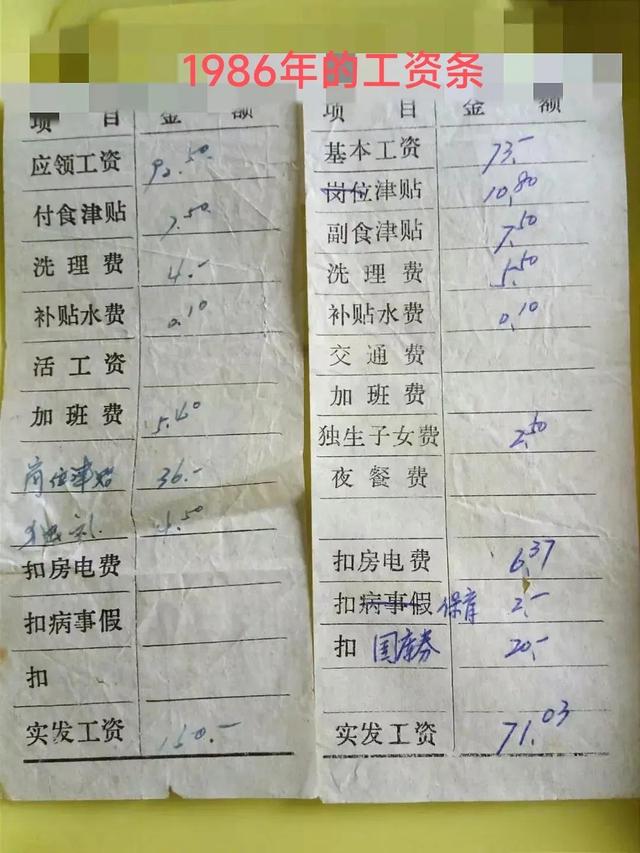 1986年的工资条
项 目 金 额
应领工资 92.50
付食津贴 7.50
洗理费 4.-
补贴水费 0.10
活工资
加班费 5.40
岗位津贴 36.-
4.50
扣房电费
扣病事假
扣
实发工资 150.-
项 目 金 额
基本工资 73.-
岗位津贴 10.80
副食津贴 7.50
洗理费 5.50
补贴水费 0.10
交通费
加班费
独生子女费 2.50
夜餐费
扣房电费 6.37
扣病事假 保育 2.-
扣 国库券 20.-
实发工资 71.03